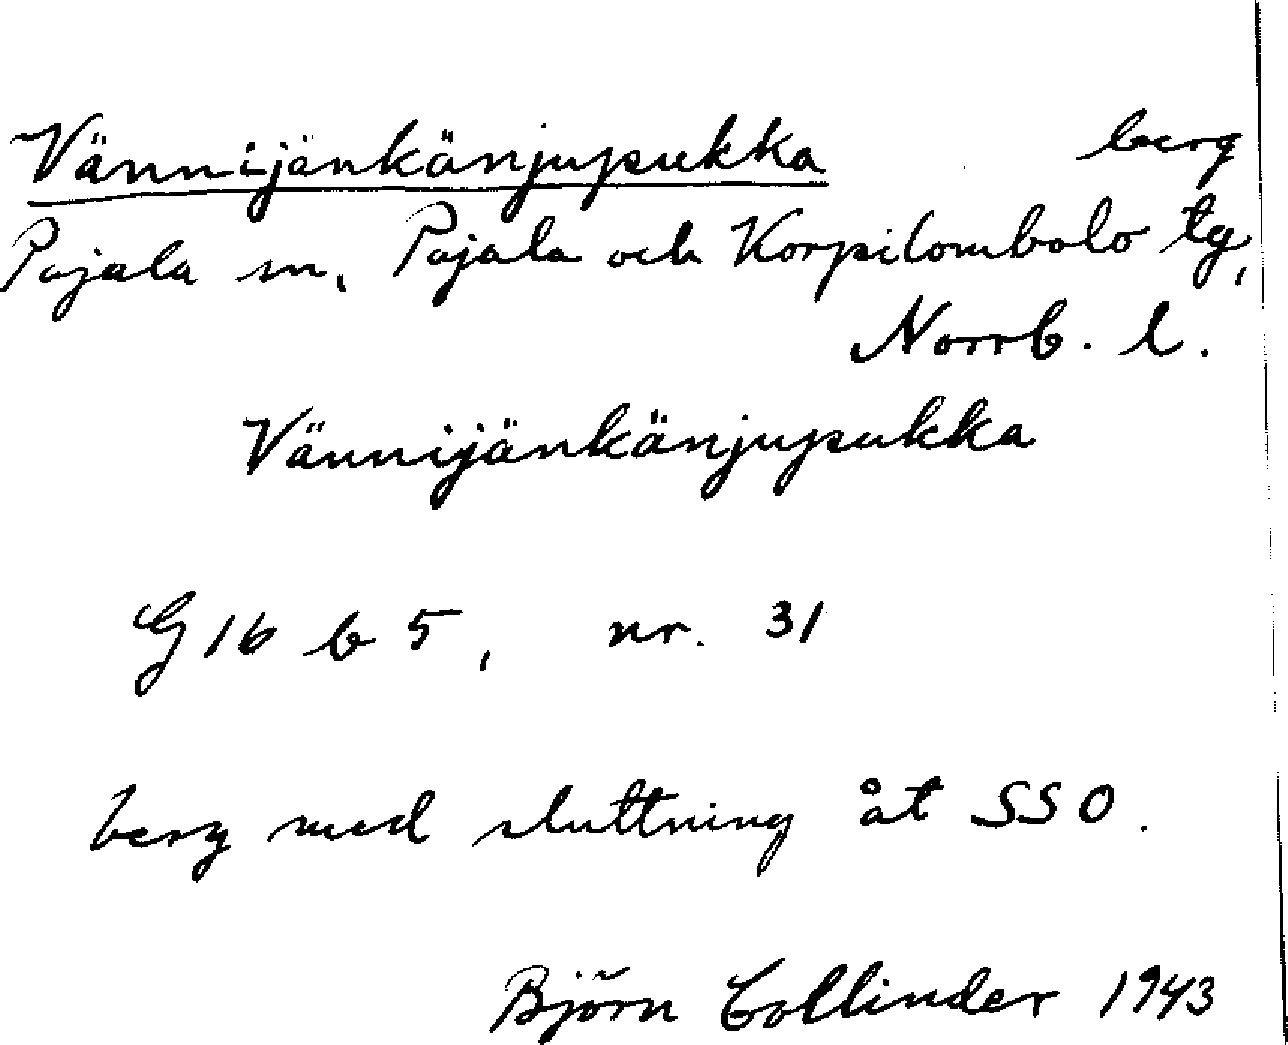 Vännijänkänjupukka berg
Pajala sn, Pajala och Korpilombolo tg,
Norrb. l.
Vännijänkänjupukka
G 16 b 5, nr. 31
berg med sluttning åt SSO.
Björn Collinder 1943